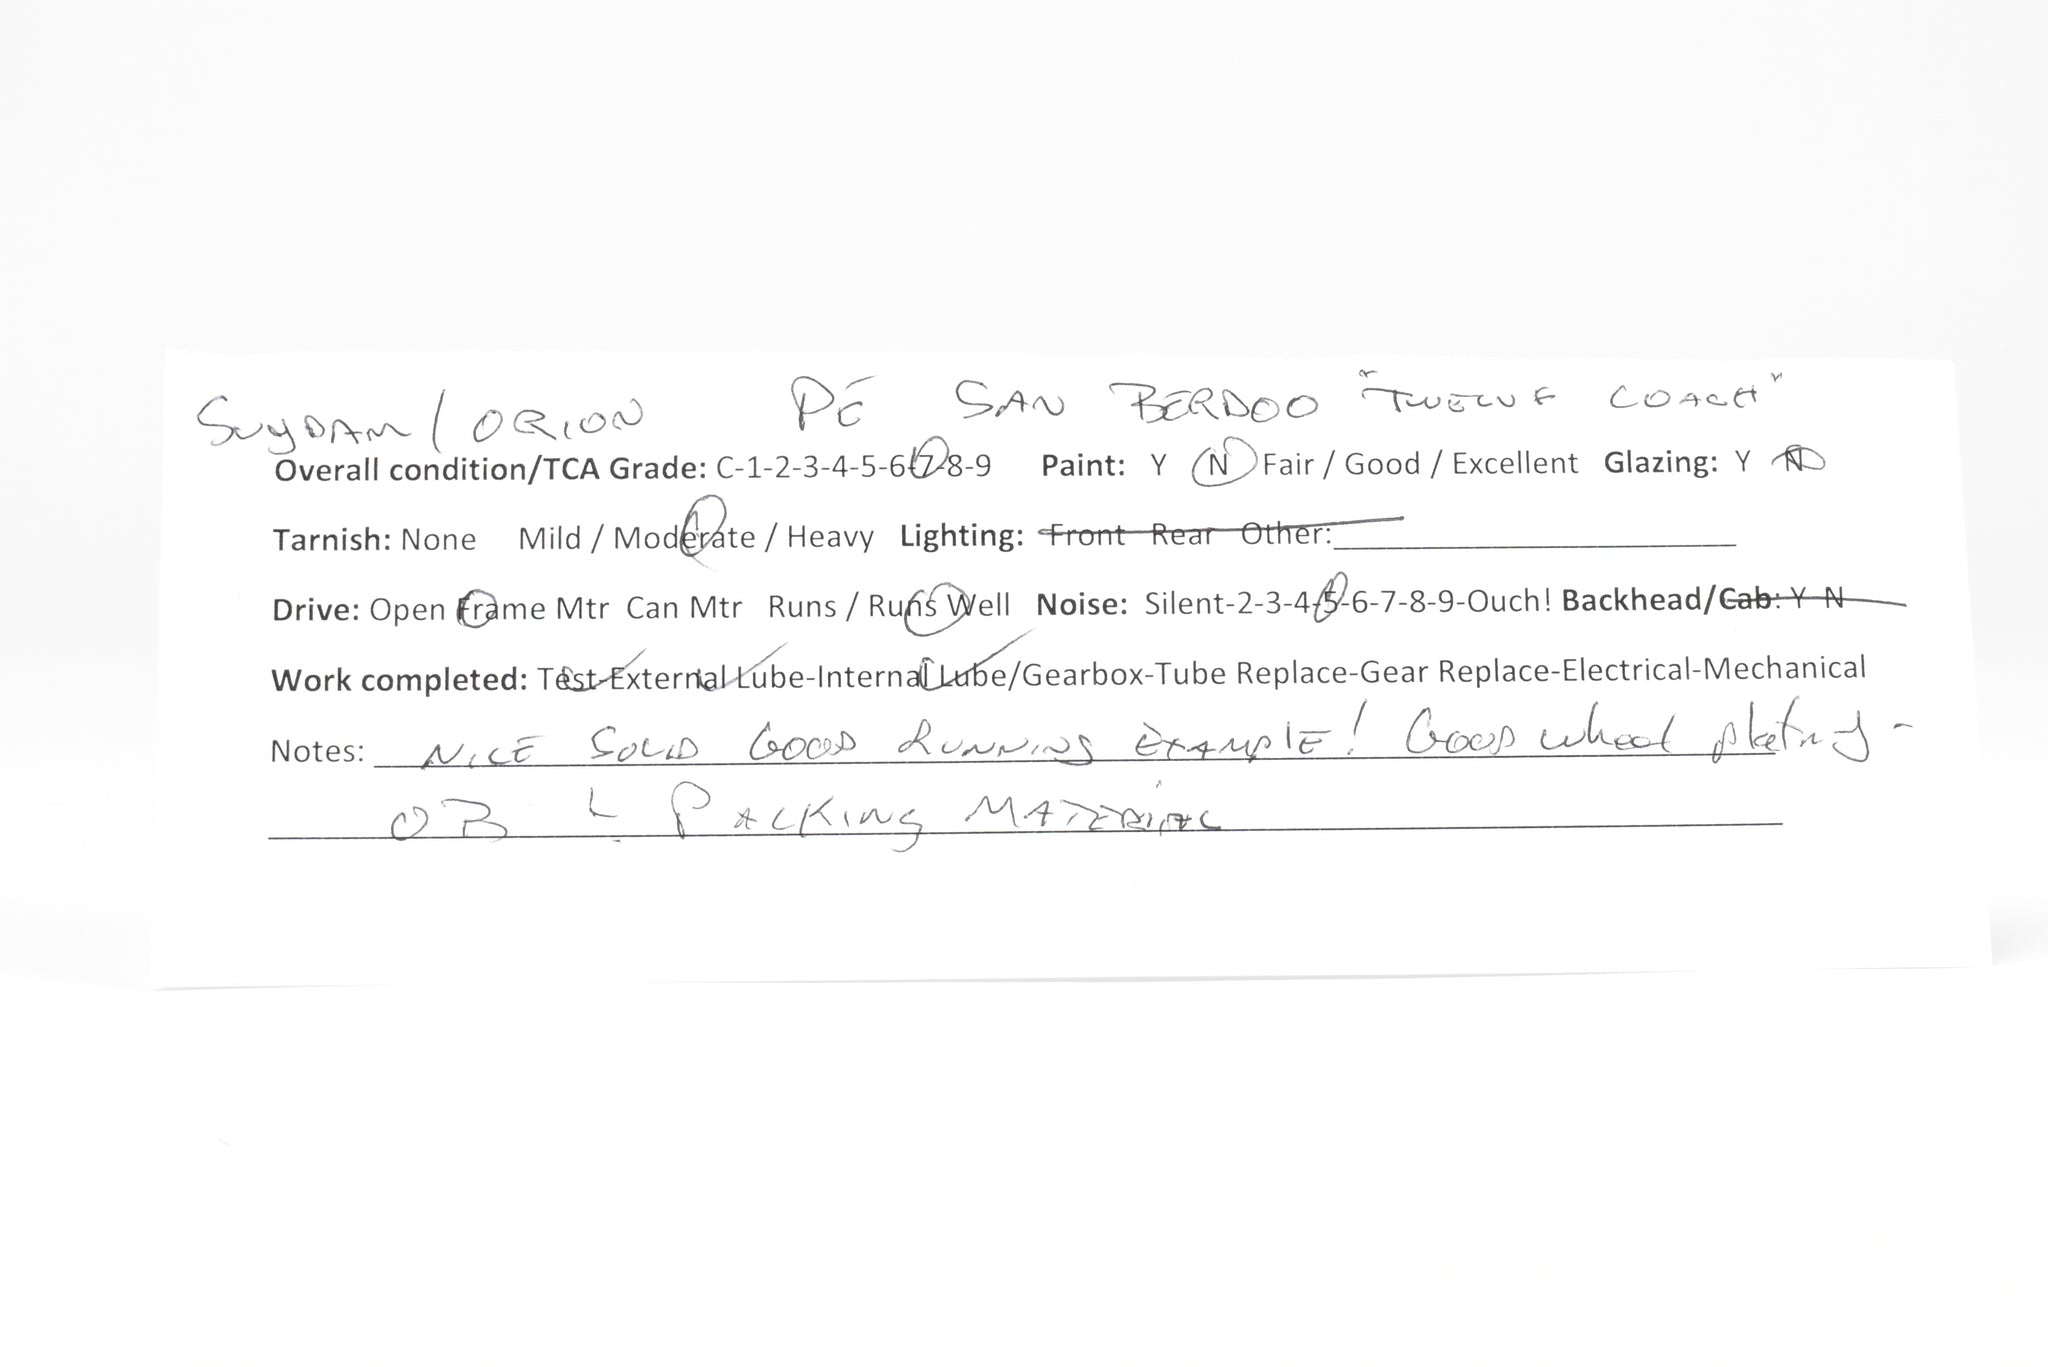 SUYDAM / ORION PE SAN BERDOO "TWELVE COACH"
Overall condition/TCA Grade: C-1-2-3-4-5-6-7-8-9 Paint: Y N Fair / Good / Excellent Glazing: Y N
Tarnish: None Mild / Moderate / Heavy Lighting: Front Rear Other:
Drive: Open Frame Mtr Can Mtr Runs / Runs Well Noise: Silent-2-3-4-5-6-7-8-9-Ouch! Backhead/Cab: Y N
Work completed: Test-External Lube-Internal Lube/Gearbox-Tube Replace-Gear Replace-Electrical-Mechanical
Notes: NICE SOLID GOOD RUNNING EXAMPLE! GOOD wheel plating -
OB PACKING MATERIAL